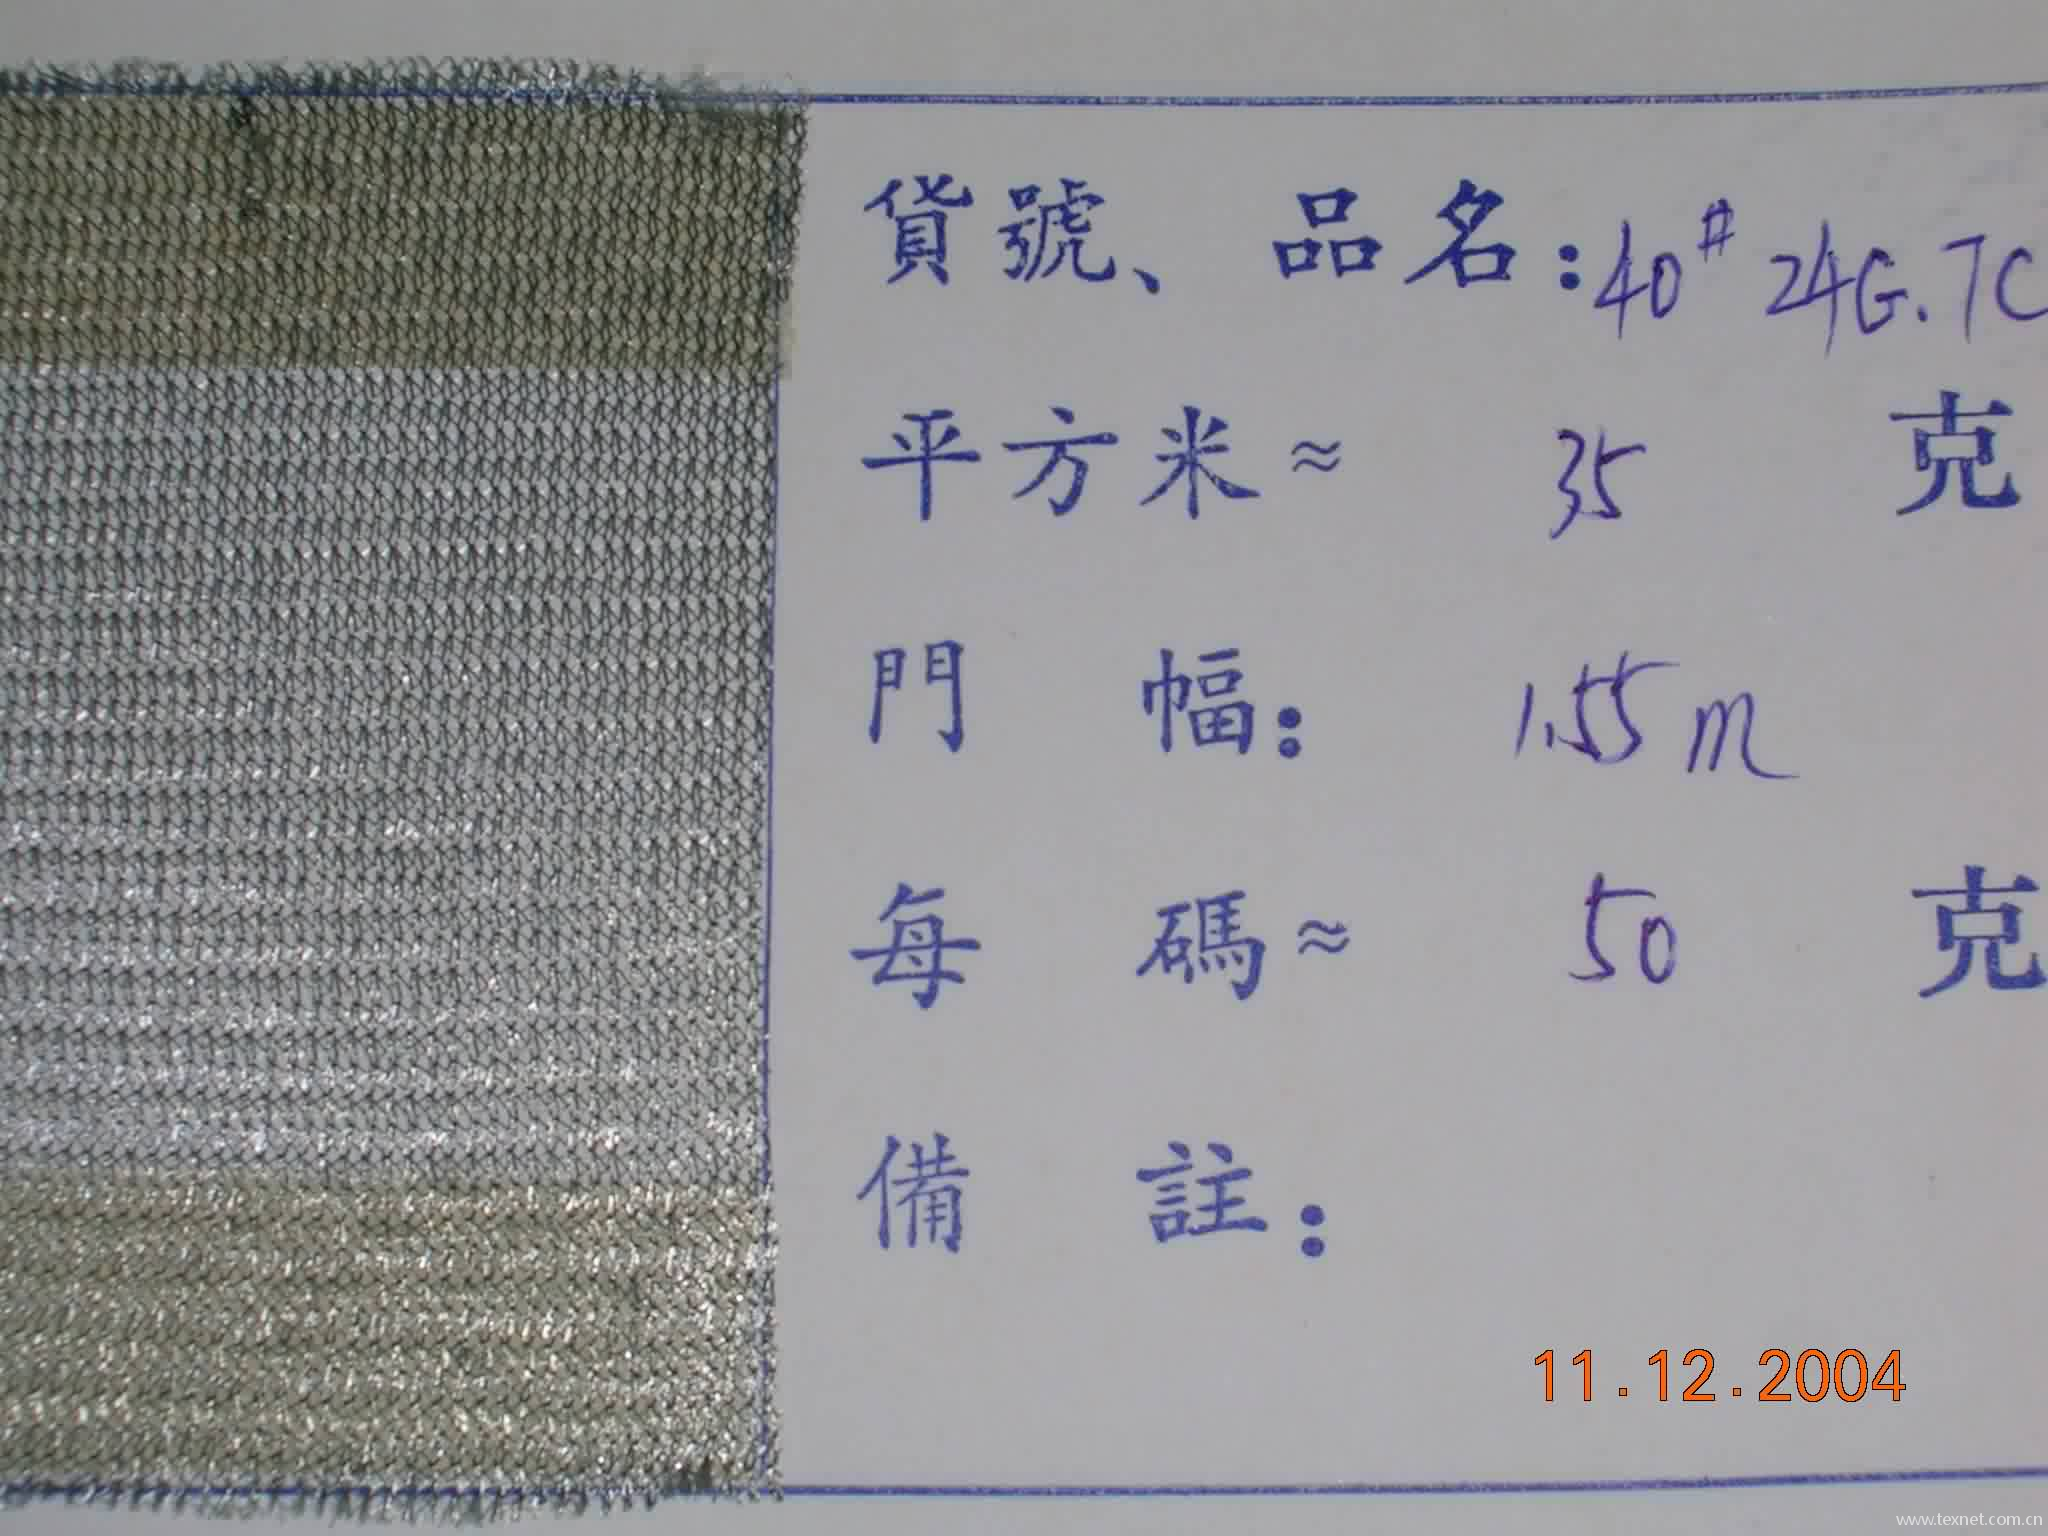 貨號、品名:40# 24G.TC
平方米≈ 35 克
門幅: 1.55m
每碼≈ 50 克
備註:
11.12.2004
www.texnet.com.cn